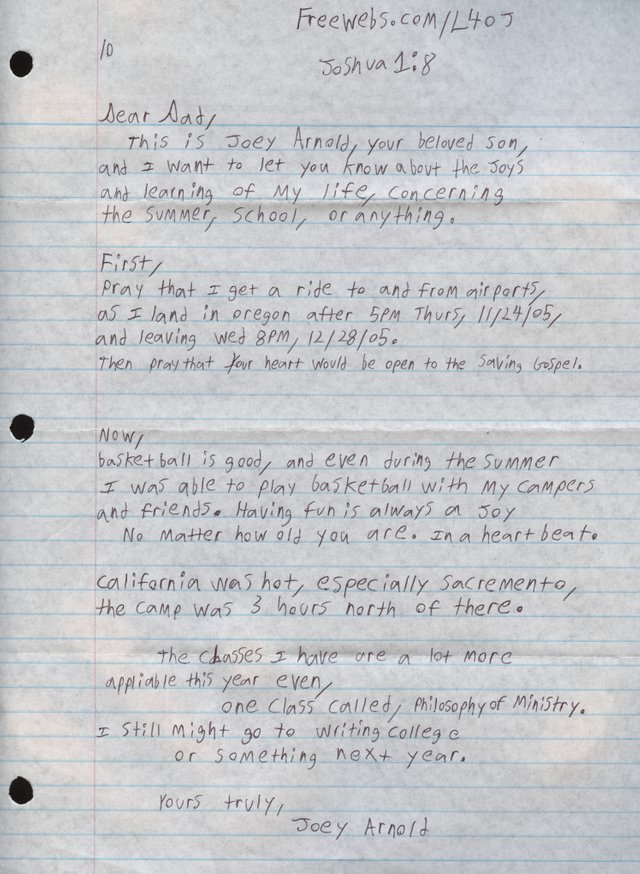 Freewebs.com/L4OJ
10
Joshua 1:8
Dear Dad,
This is Joey Arnold, your beloved son,
and I want to let you know about the Joys
and learning of My life, concerning
the summer, school, or anything.
First,
Pray that I get a ride to and from airports,
as I land in oregon after 5PM Thurs, 11/24/05,
and leaving Wed 8PM, 12/28/05.
Then pray that your heart would be open to the Saving Gospel.
Now,
basketball is good, and even during the summer
I was able to play basketball with My campers
and friends. Having fun is always a Joy
No Matter how old you are. In a heart beat.
California was hot, especially Sacremento,
the camp was 3 hours north of there.
The classes I have are a lot more
appliable this year even,
one class called, Philosophy of Ministry.
I still Might go to writing college
or something next year.
Yours truly,
Joey Arnold